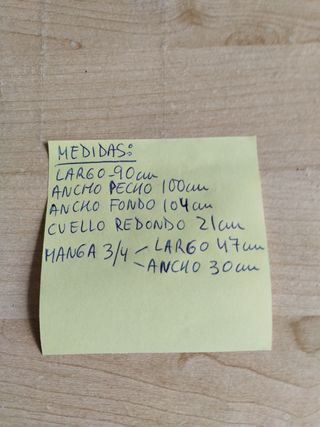 MEDIDAS:
LARGO-90cm
ANCHO PECHO 100cm
ANCHO FONDO 104cm
CUELLO REDONDO 21cm
MANGA 3/4 - LARGO 47cm
- ANCHO 30cm